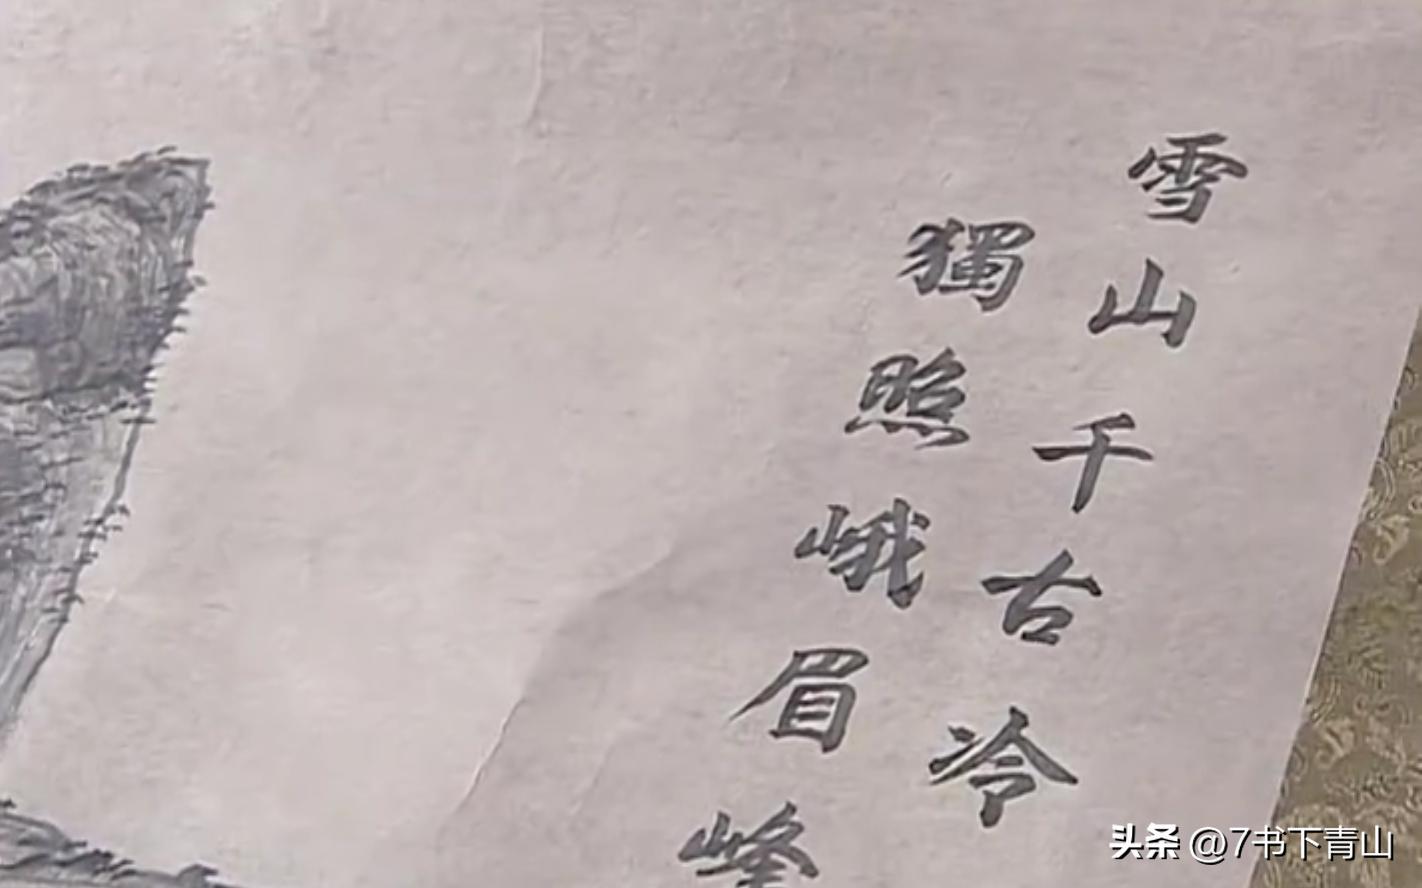 雪山千古冷
獨照峨眉峰
头条 @7书下青山